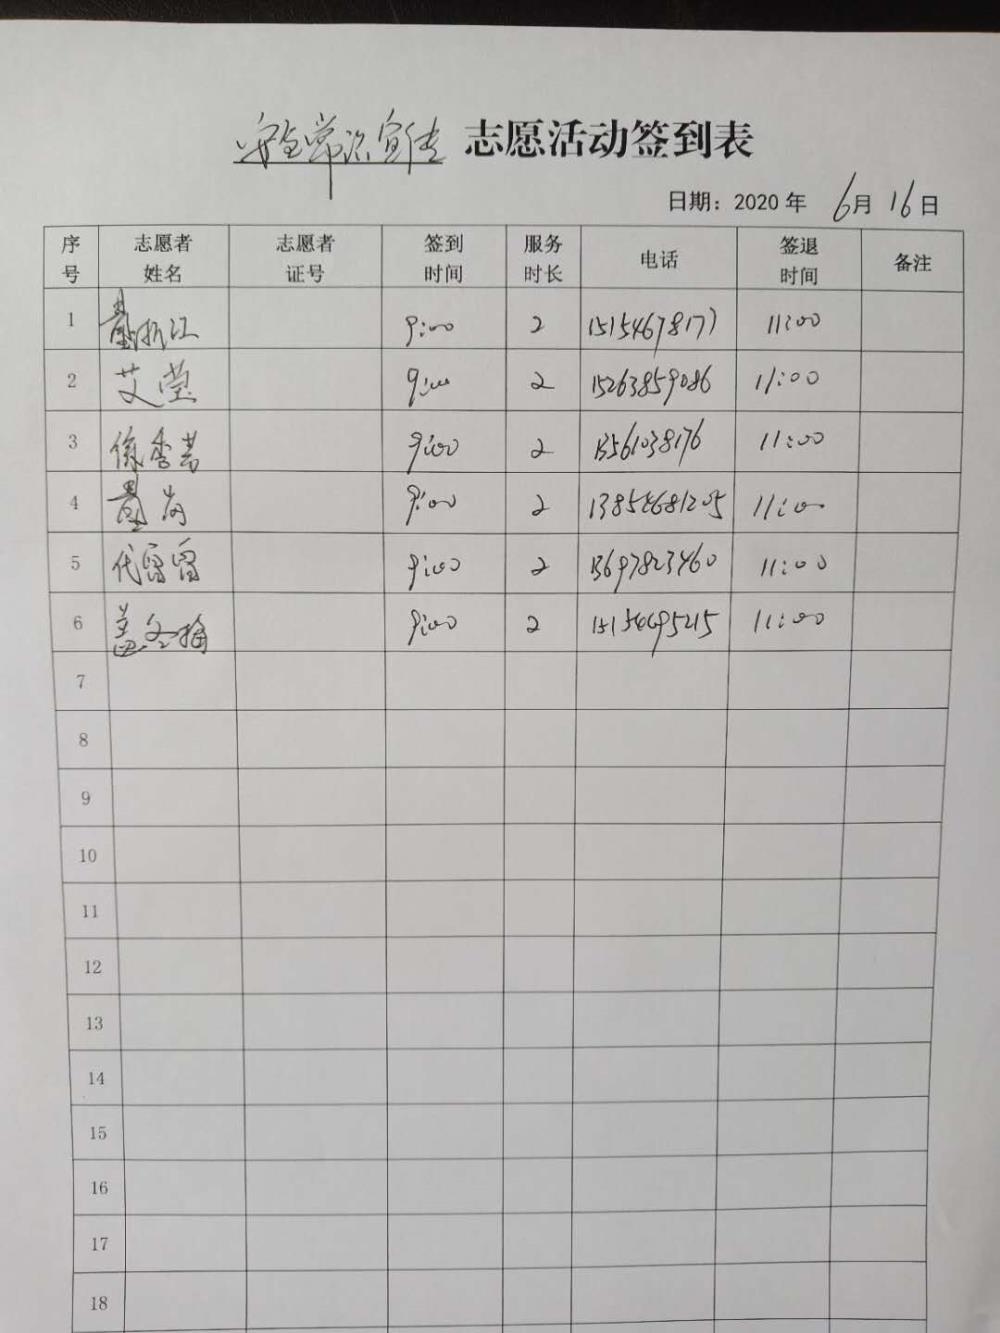 安全常识宣传 志愿活动签到表
日期：2020年 6月16日
序号 志愿者姓名 志愿者证号 签到时间 服务时长 电话 签退时间 备注
1 9:00 2 15154678177 11:00
2 艾莹 9:00 2 15263859086 11:00
3 徐秀芸 9:00 2 13561038176 11:00
4 9:00 2 13854681205 11:00
5 代留留 9:00 2 13697823460 11:00
6 盖冬梅 9:00 2 15154695215 11:00
7
8
9
10
11
12
13
14
15
16
17
18